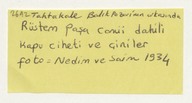 2692 Tahtakale Balık Pazarının ortasında
Rüstem Paşa Camii dahili
kapu ciheti ve çiniler
foto = Nedim ve Saim 1934